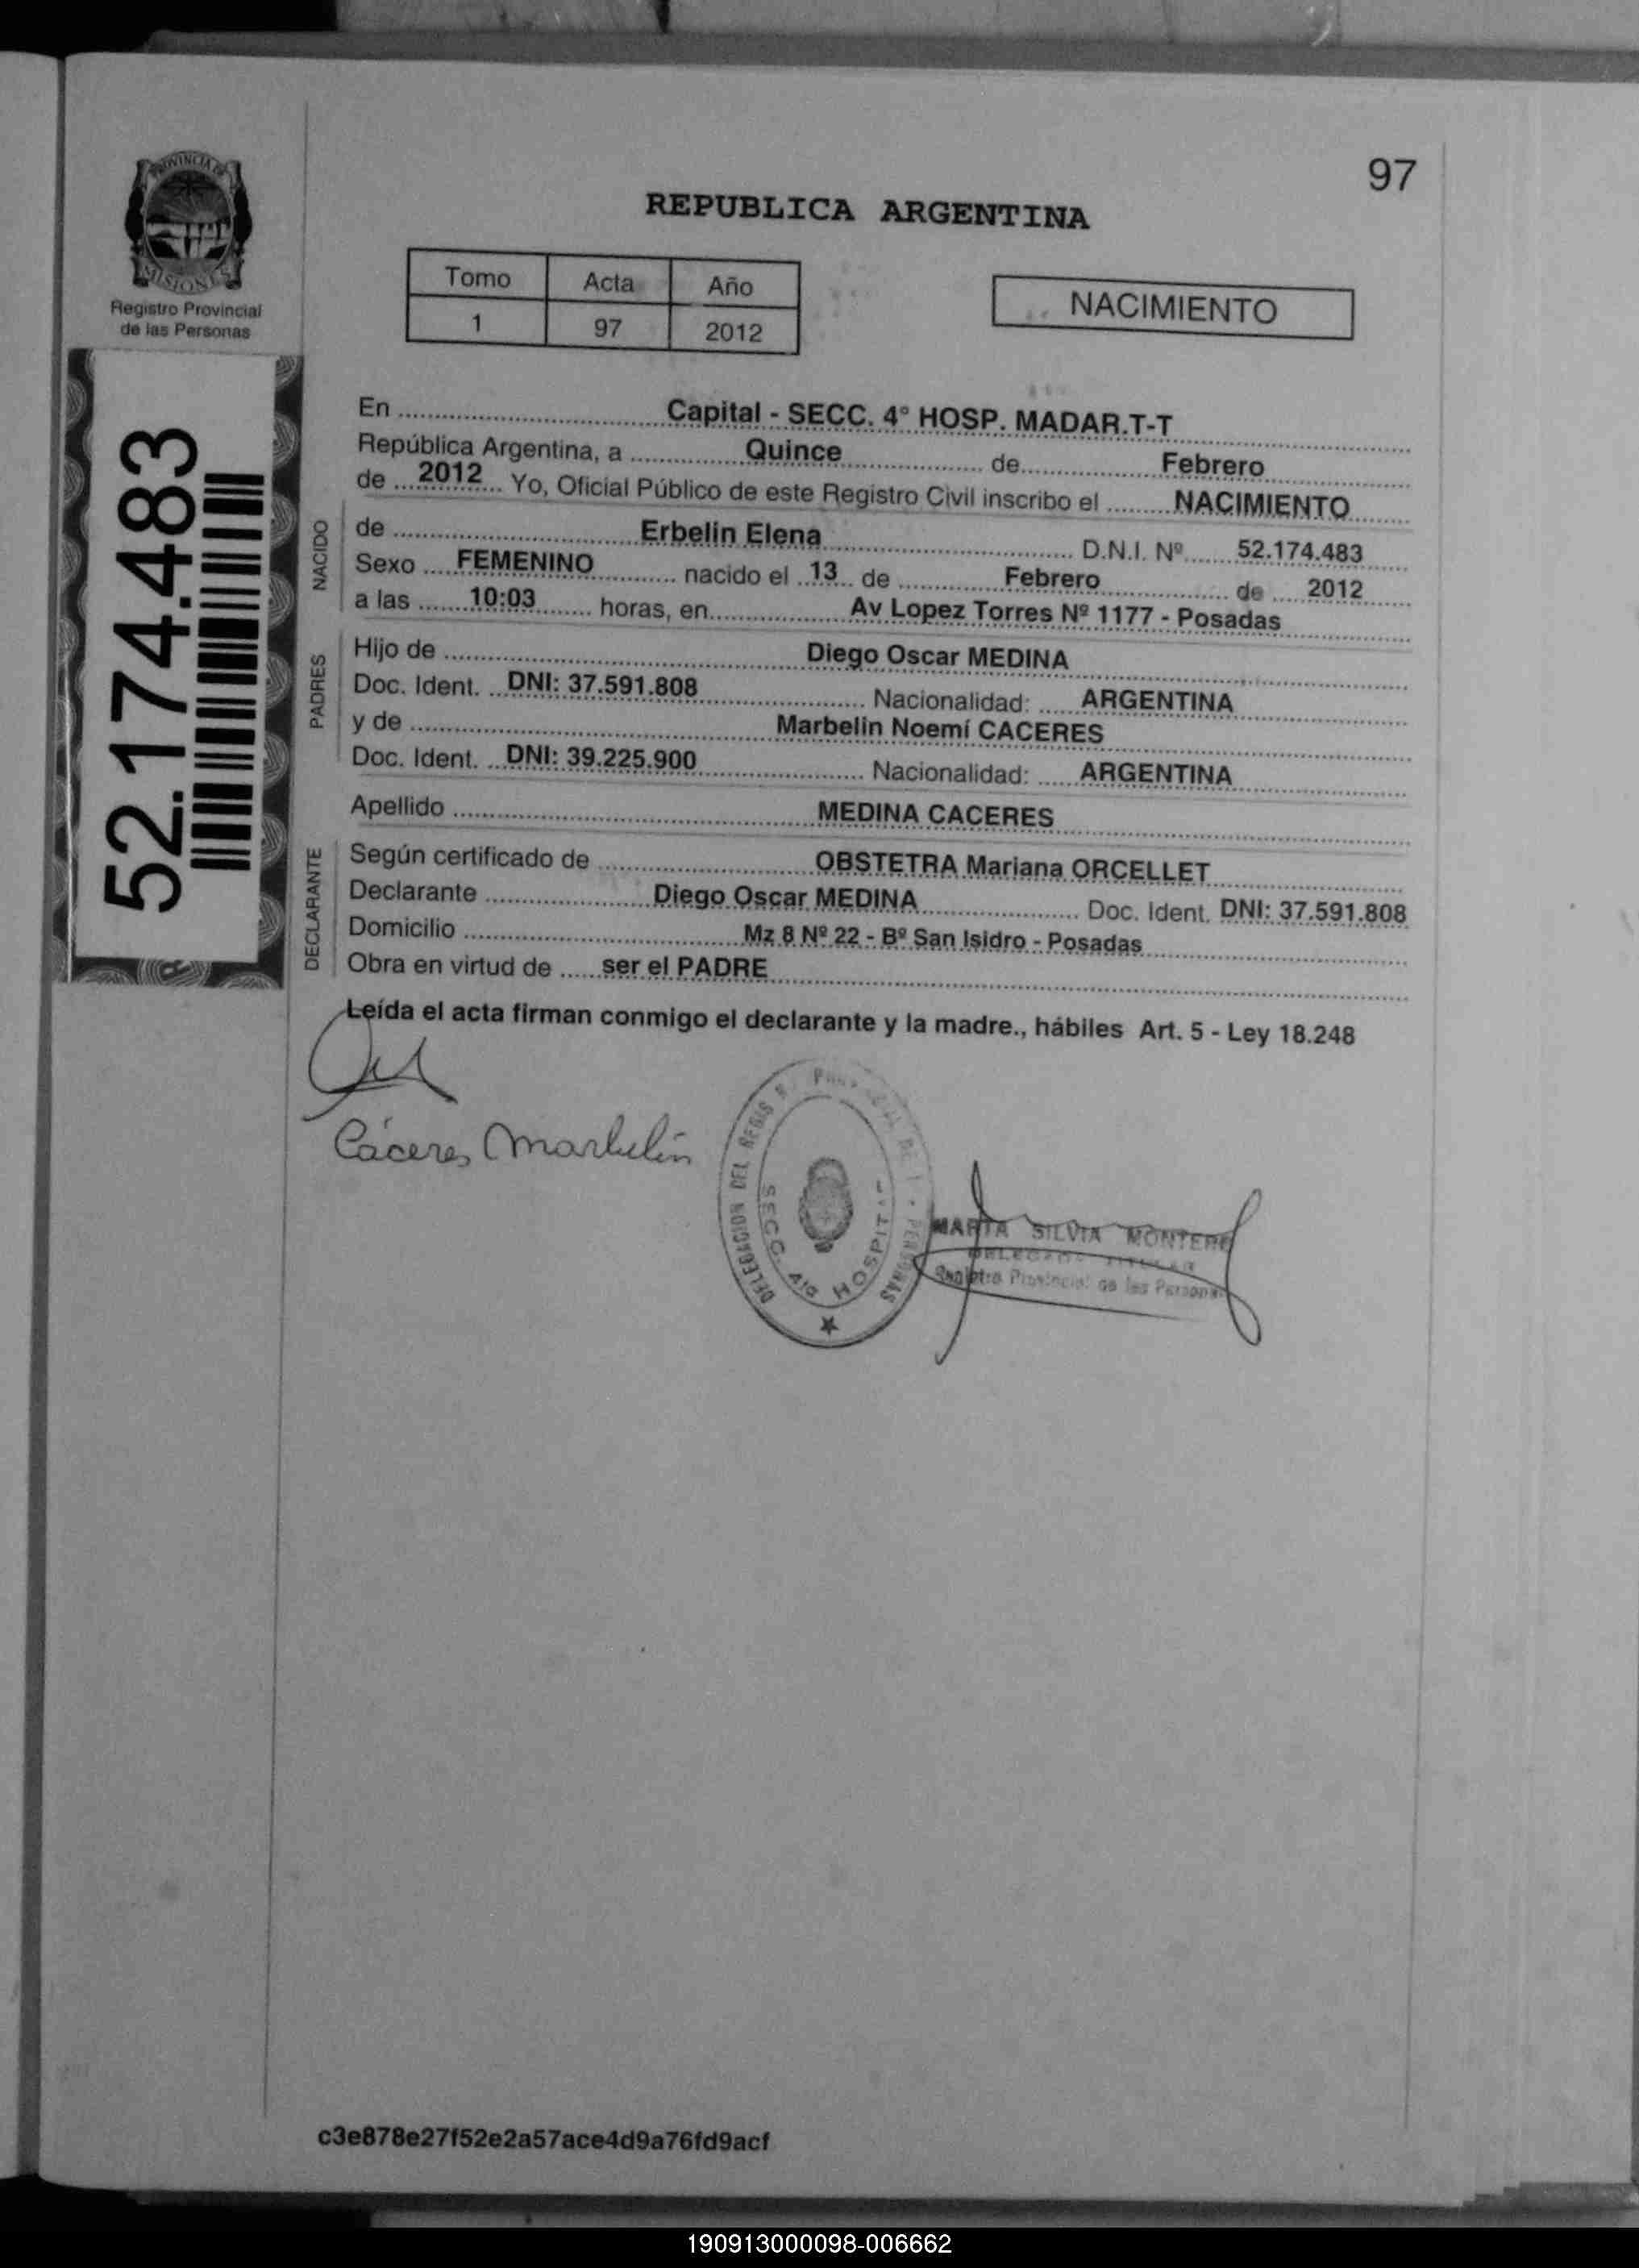 97
PROVINCIA DE
MISIONES
Registro Provincial
de las Personas
REPUBLICA ARGENTINA
Tomo Acta Año
1 97 2012
NACIMIENTO
52.174.483
En Capital - SECC. 4° HOSP. MADAR.T-T
República Argentina, a Quince de Febrero
de 2012 Yo, Oficial Público de este Registro Civil inscribo el NACIMIENTO
NACIDO
de Erbelin Elena D.N.I. Nº 52.174.483
Sexo FEMENINO nacido el 13 de Febrero de 2012
a las 10:03 horas, en Av Lopez Torres Nº 1177 - Posadas
PADRES
Hijo de Diego Oscar MEDINA
Doc. Ident. DNI: 37.591.808 Nacionalidad: ARGENTINA
y de Marbelin Noemí CACERES
Doc. Ident. DNI: 39.225.900 Nacionalidad: ARGENTINA
Apellido MEDINA CACERES
DECLARANTE
Según certificado de OBSTETRA Mariana ORCELLET
Declarante Diego Oscar MEDINA Doc. Ident. DNI: 37.591.808
Domicilio Mz 8 Nº 22 - Bº San Isidro - Posadas
Obra en virtud de ser el PADRE
Leída el acta firman conmigo el declarante y la madre., hábiles Art. 5 - Ley 18.248
Cáceres Marbelin
DELEGACION DEL PERSONAS
SECC. 4ta HOSPITAL
MARTA SILVIA MONTERO
Registro Provincial de las Personas
c3e878e27f52e2a57ace4d9a76fd9acf
190913000098-006662